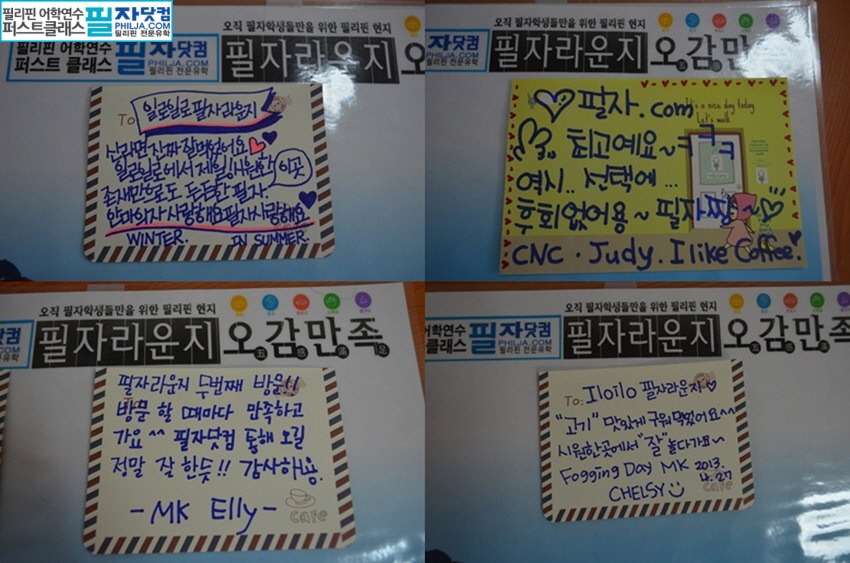 필리핀 어학연수
퍼스트클래스
필자닷컴
PHILJA.COM
필리핀 전문유학
오직 필자학생들만을 위한 필리핀 현지
필리핀 어학연수
퍼스트 클래스
필자닷컴
PHILJA.COM
필리핀 전문유학
필자라운지 오
To 일로일로 필자라운지
신라면 진짜 잘먹었어요
일로일로에서 제일! 시원한 이곳
존재만으로도 든든한 필자
안마의자 사랑해요 필자 사랑해요
WINTER. IN SUMMER.
오직 필자학생들만을 위한 필리핀 현지
자닷컴
PHILJA.COM
필리핀 전문유학
필자라운지 오감만
필자.com
It's a nice day today
Let's walk
최고예요~ㅋㅋㅋ
역시.. 선택에...
후회없어용~ 필자짱~
CNC. Judy. I like Coffee.
오직 필자학생들만을 위한 필리핀 현지
닷컴
JA.COM
전문유학
필자라운지 오감만족
필자라운지 두번째 방문!!
방문 할 때마다 만족하고
가요^^ 필자닷컴 통해 오길
정말 잘 한듯!! 감사해용.
- MK Elly -
cafe
오직 필자학생들만을 위한 필리핀 현지
어학연수
클래스
필자닷컴
PHILJA.COM
필리핀 전문유학
필자라운지 오감만족
To: Iloilo 필자라운지
"고기" 맛있게 구워 먹었어요^^
시원한곳에서 "잘" 놀다가요~
Fogging Day MK 2013.
4.27
CHELSY
cafe